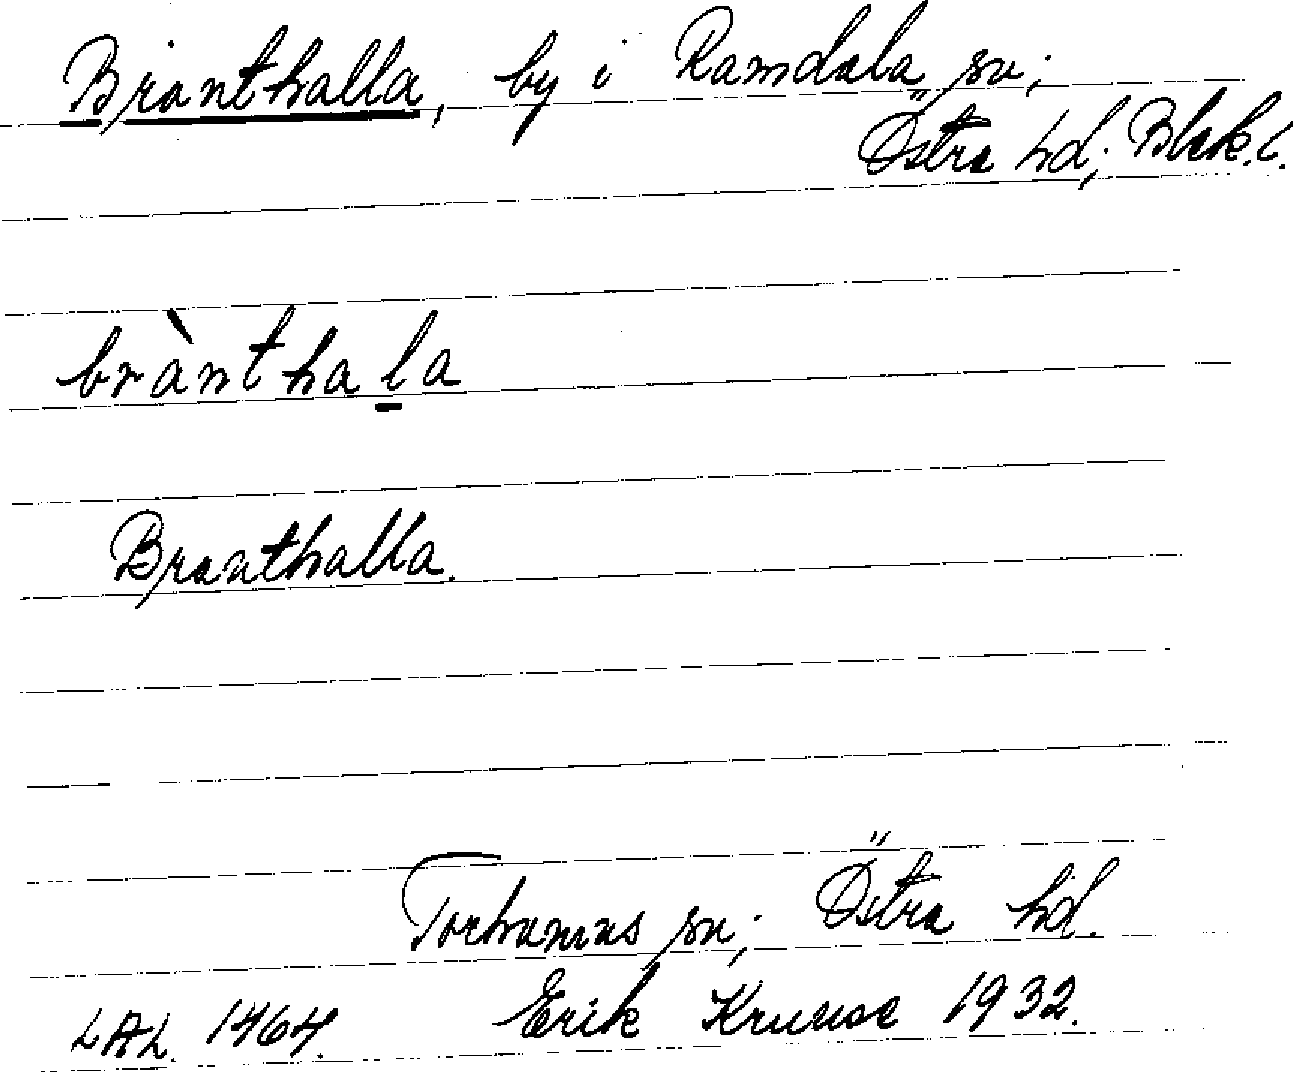 Branthalla, by i Ramdala sn;
Östra hd; Blek.l.
brànthala
Branthalla.
Torhamns sn; Östra hd.
LAL. 1464. Erik Kruuse 1932.